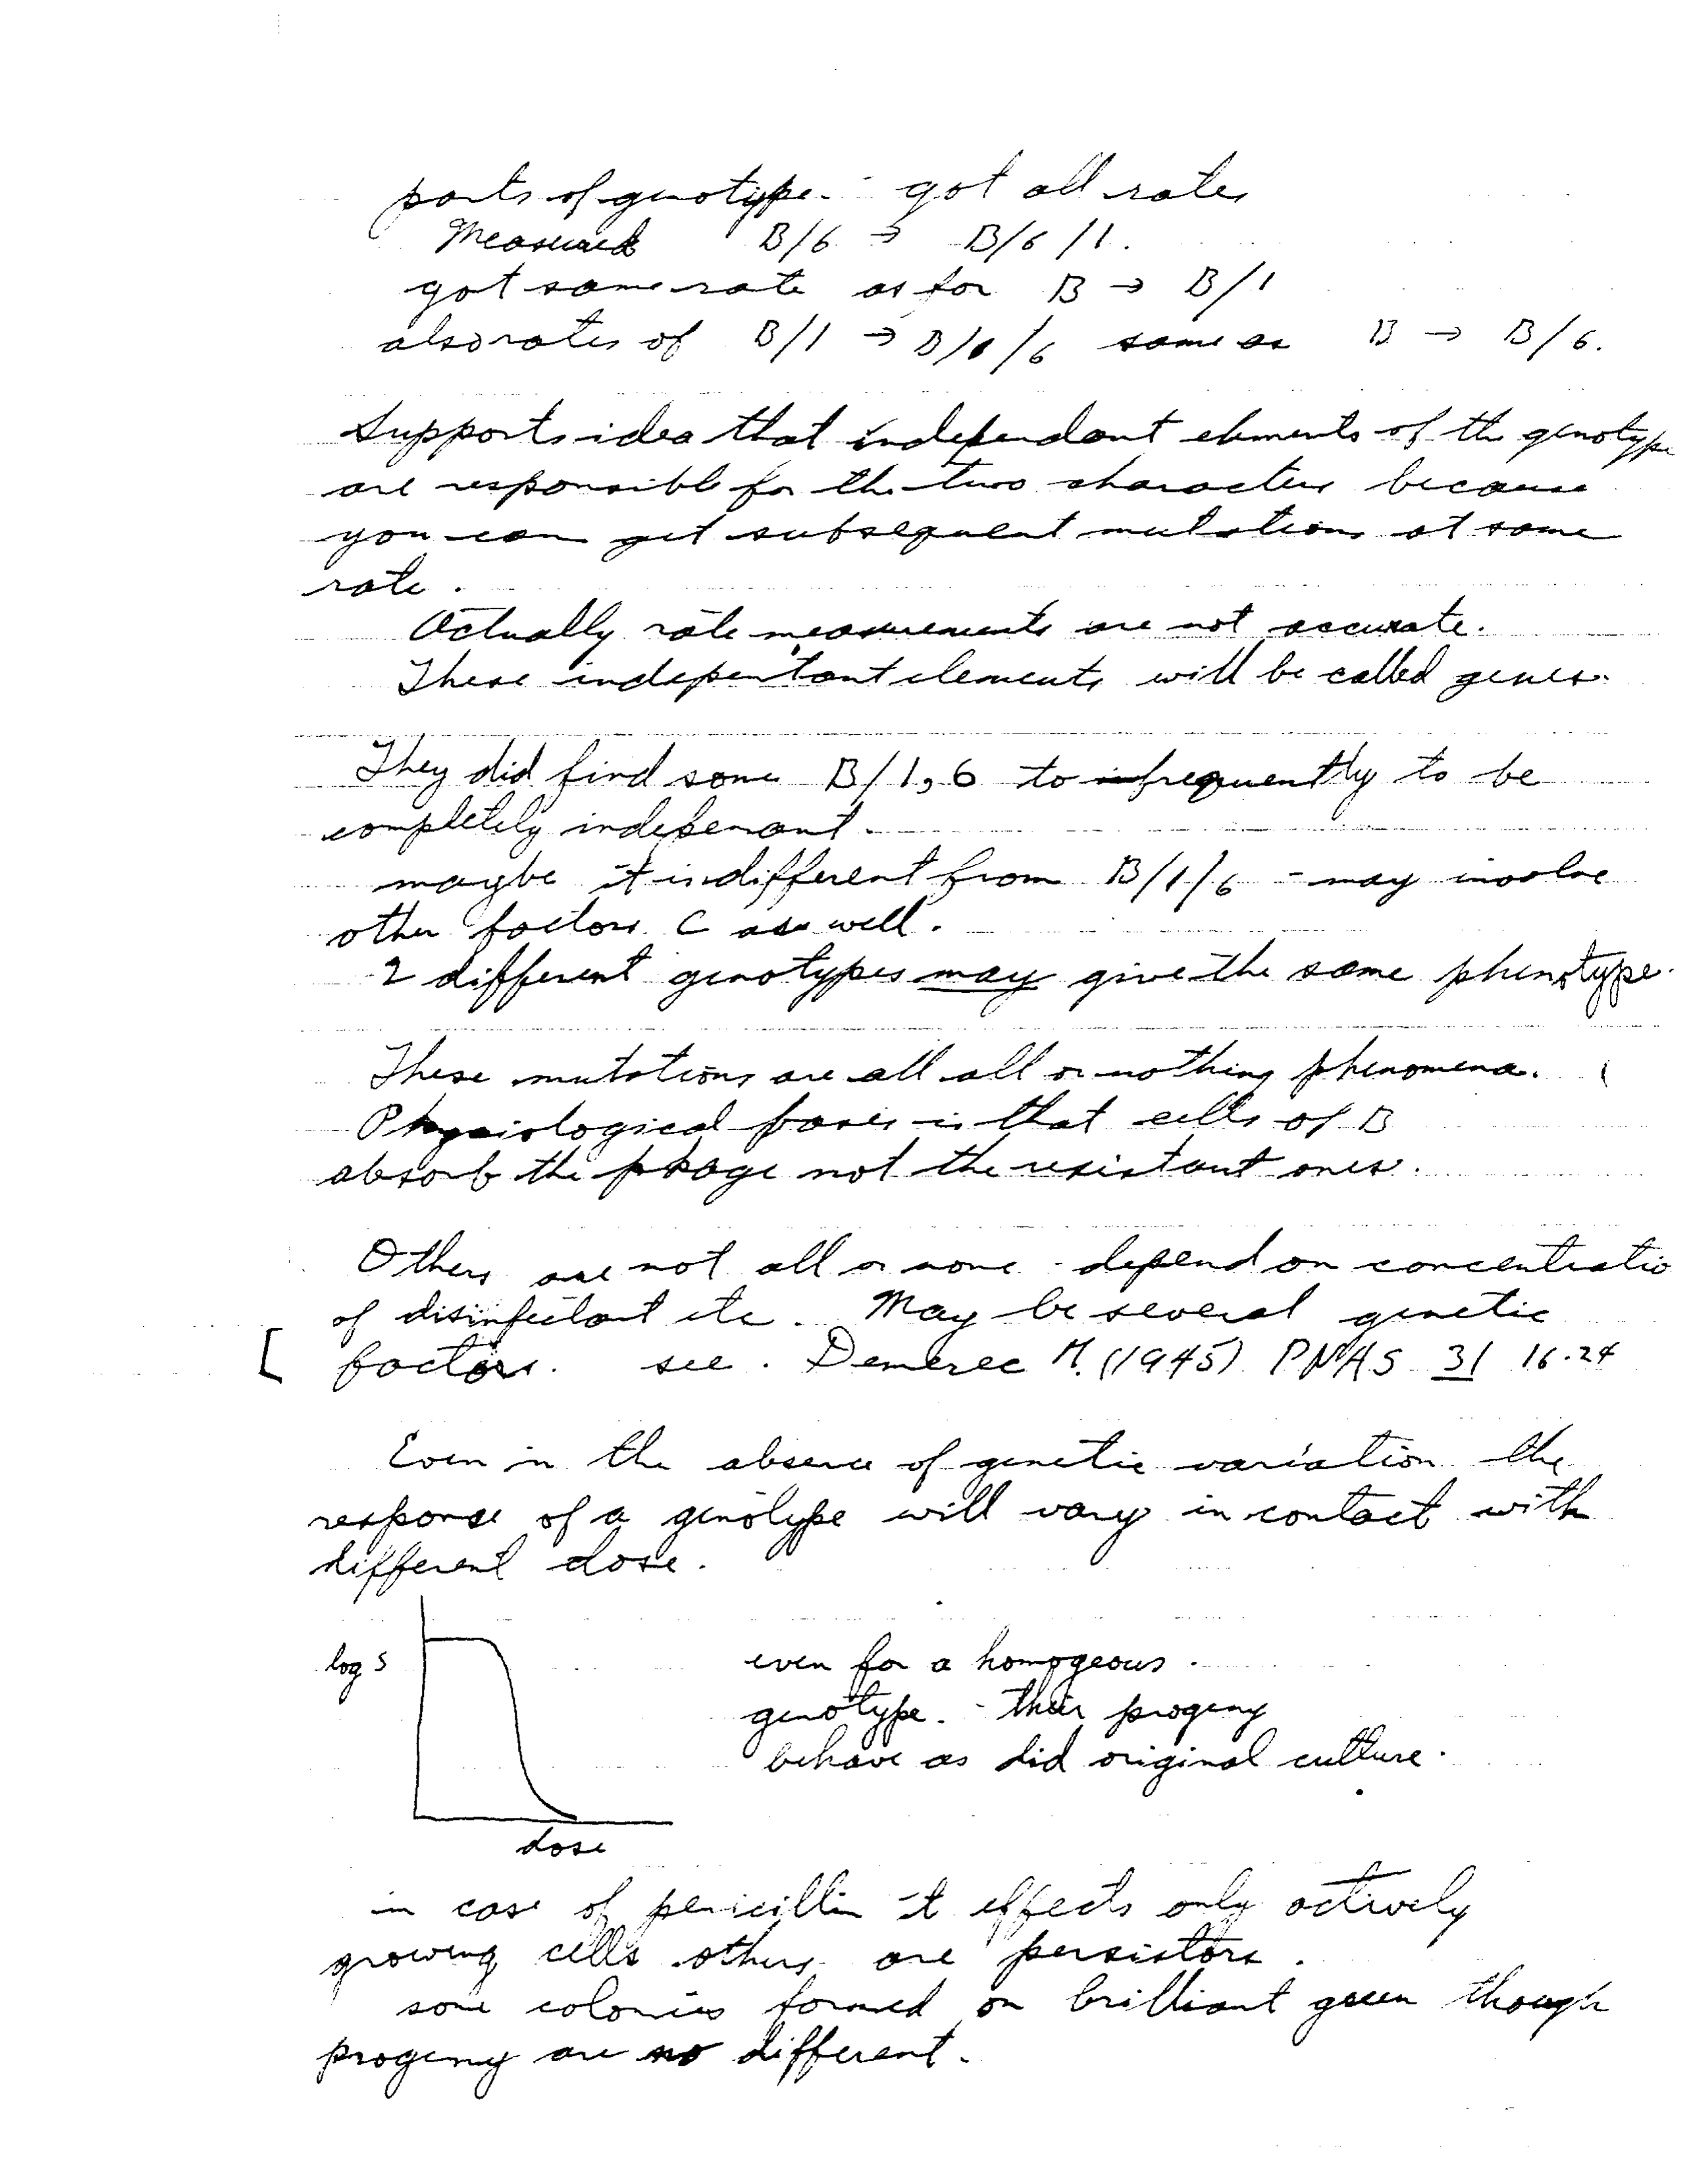 parts of genotype - got all rates
Measured B/6 → B/6/1.
got same rate as for B → B/1
also rates of B/1 → B/1/6 same as B → B/6.
Supports idea that independant elements of the genotype
are responsible for the two characters because
you can get subsequent mutations at same
rate.
Actually rate measurements are not accurate.
These indepentant elements will be called genes.
They did find some B/1,6 to frequently to be
completely indepenant.
maybe it is different from B/1/6 - may involve
other factors C as well.
2 different genotypes may give the same phenotype.
These mutations are all all or nothing phenomena.
Physiological bases is that cells of B
absorb the phage not the resistant ones.
Others are not all or none - depend on concentratio
of disinfectant etc. May be several genetic
[ factors. see. Demerec M. (1945) PNAS 31 16-24
Even in the absence of genetic variation the
response of a genotype will vary in contact with
different dose.
log S
even for a homogeous
genotype. - their progeny
behave as did original culture.
dose
in case of penicillin it effects only actively
growing cells others are persistors.
some colonies formed on brilliant green though
progeny are no different.